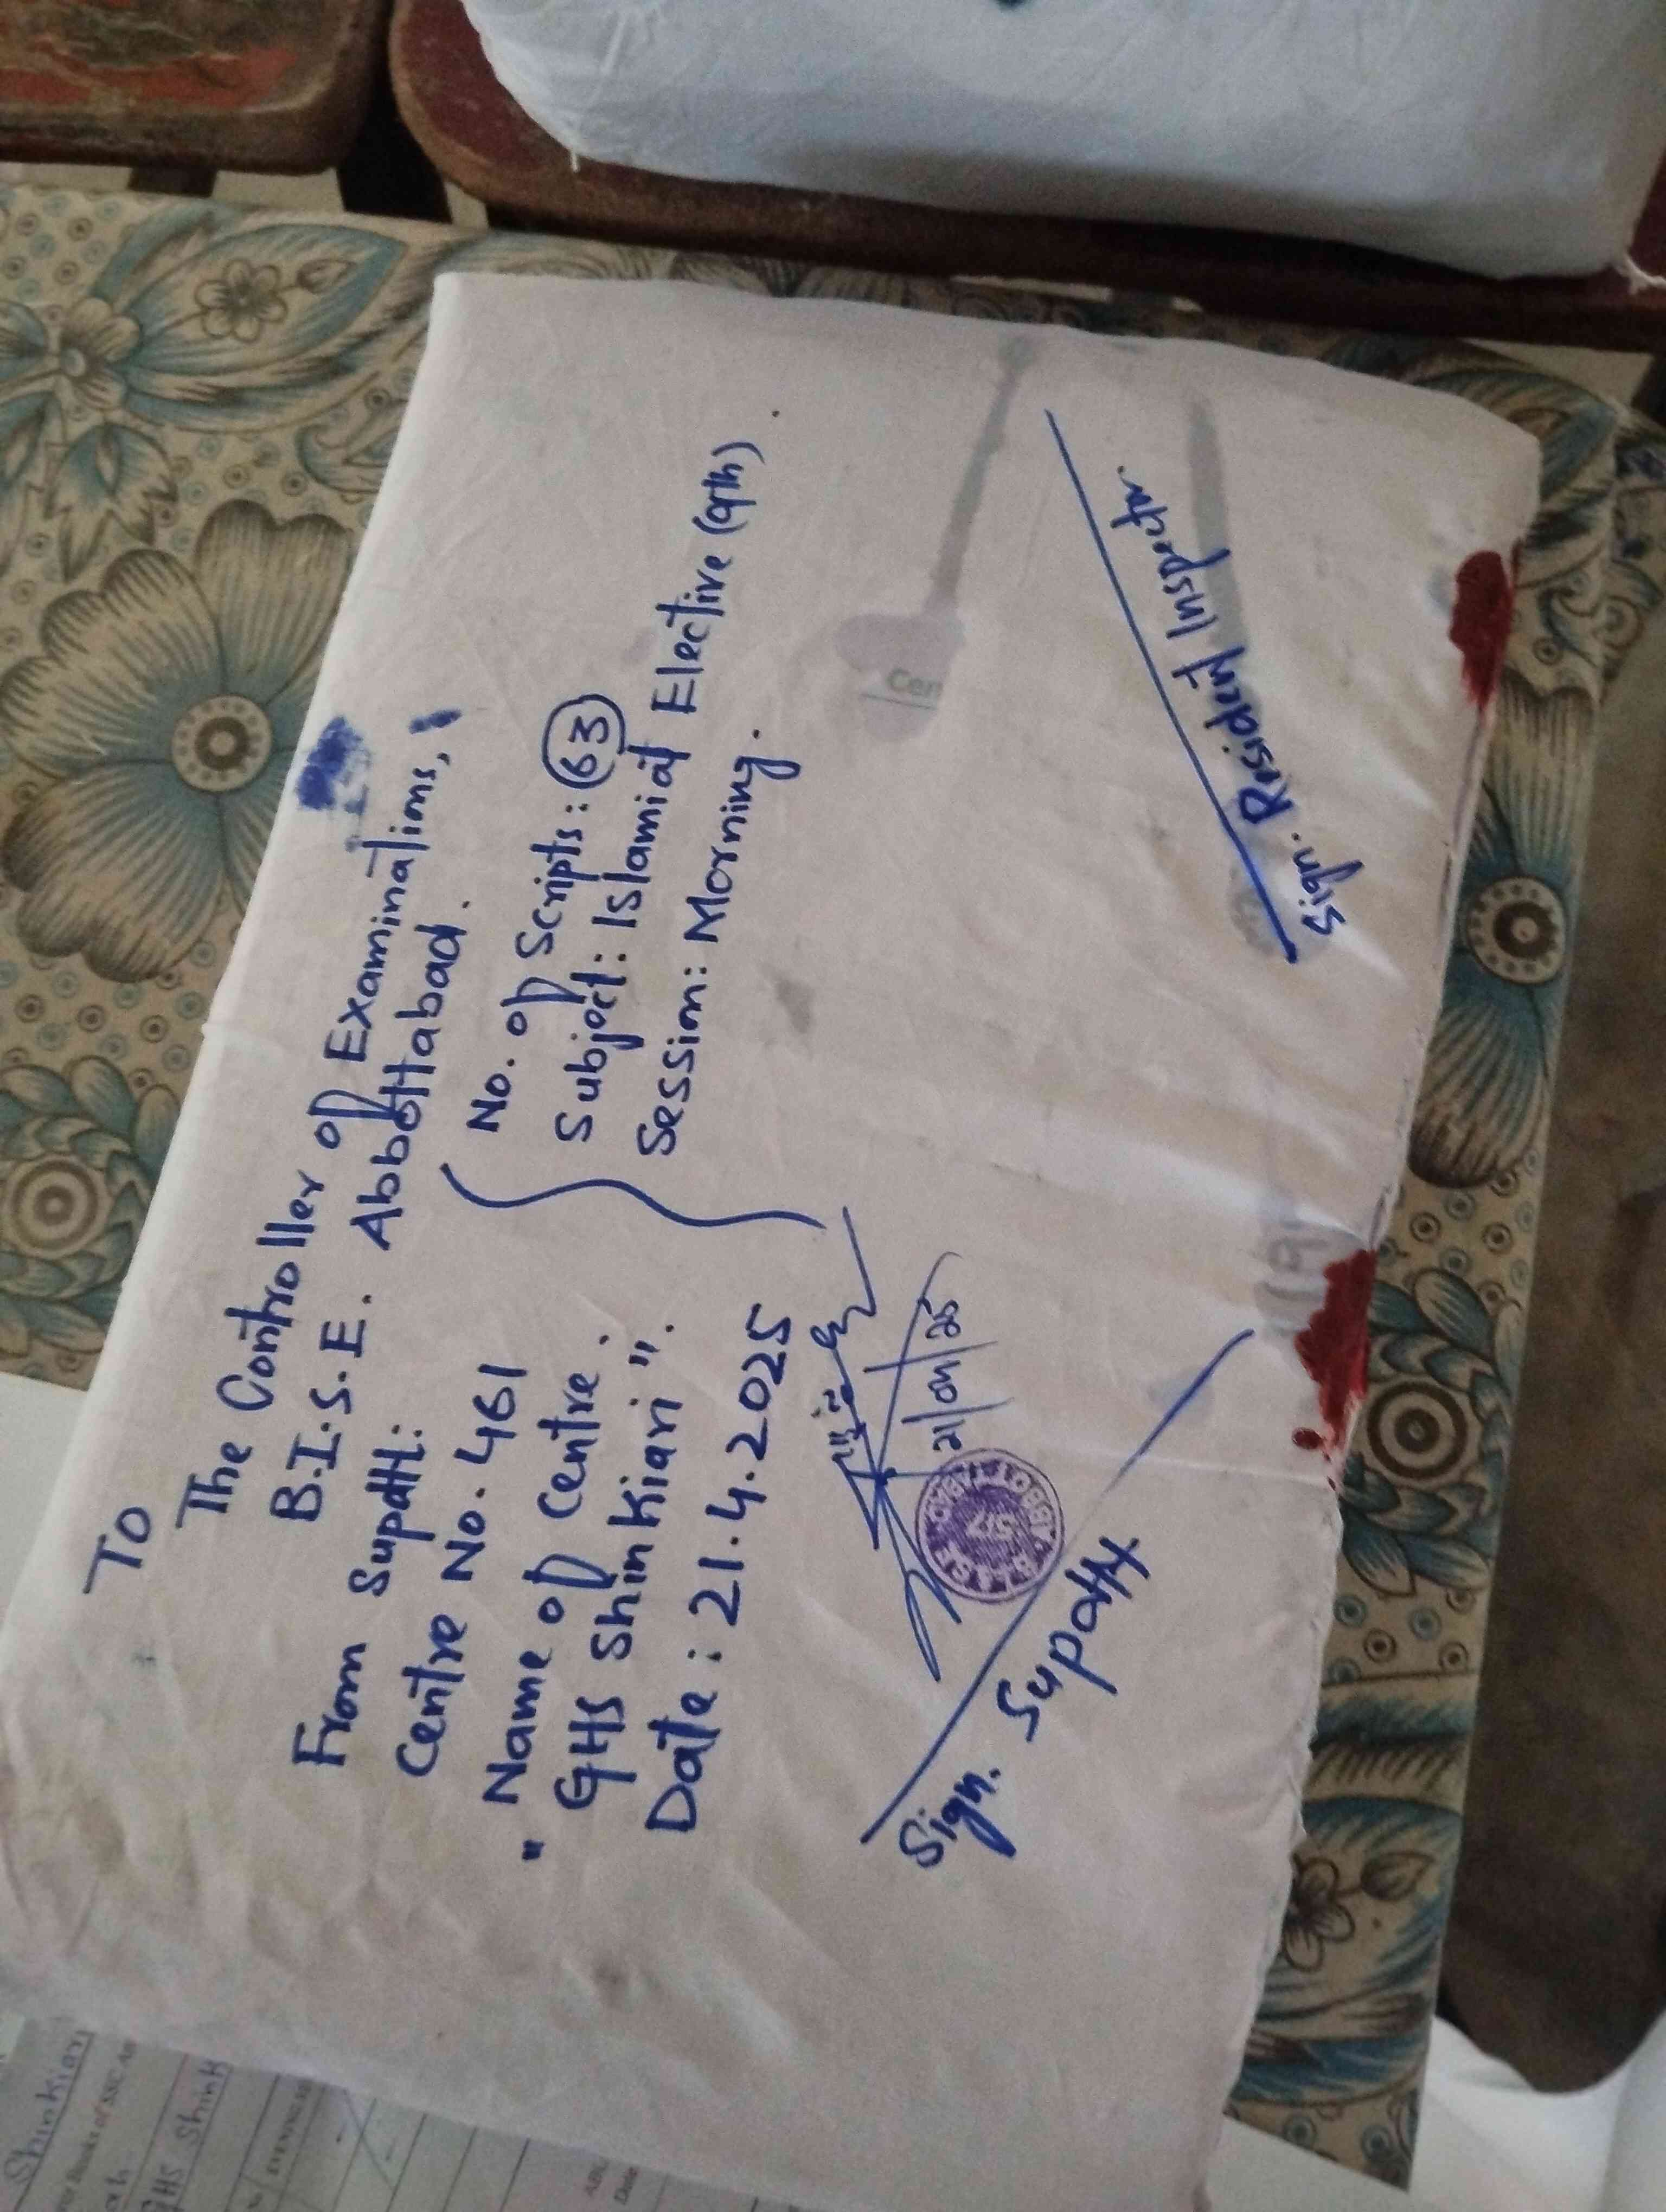 To
The Controller of Examinations,
B.I.S.E. Abbottabad.
From Supdtt:
Centre No. 461
" Name of Centre.
GHS Shinkiari ".
Date: 21.4.2025
No. of Scripts: 63
Subject: Islamiat Elective (9th).
Session: Morning.
21/04/25
57
Sign. Supdtt
Sign. Resident Inspector
Cen
Shinkiari
GHS Shink
EVENING
Date